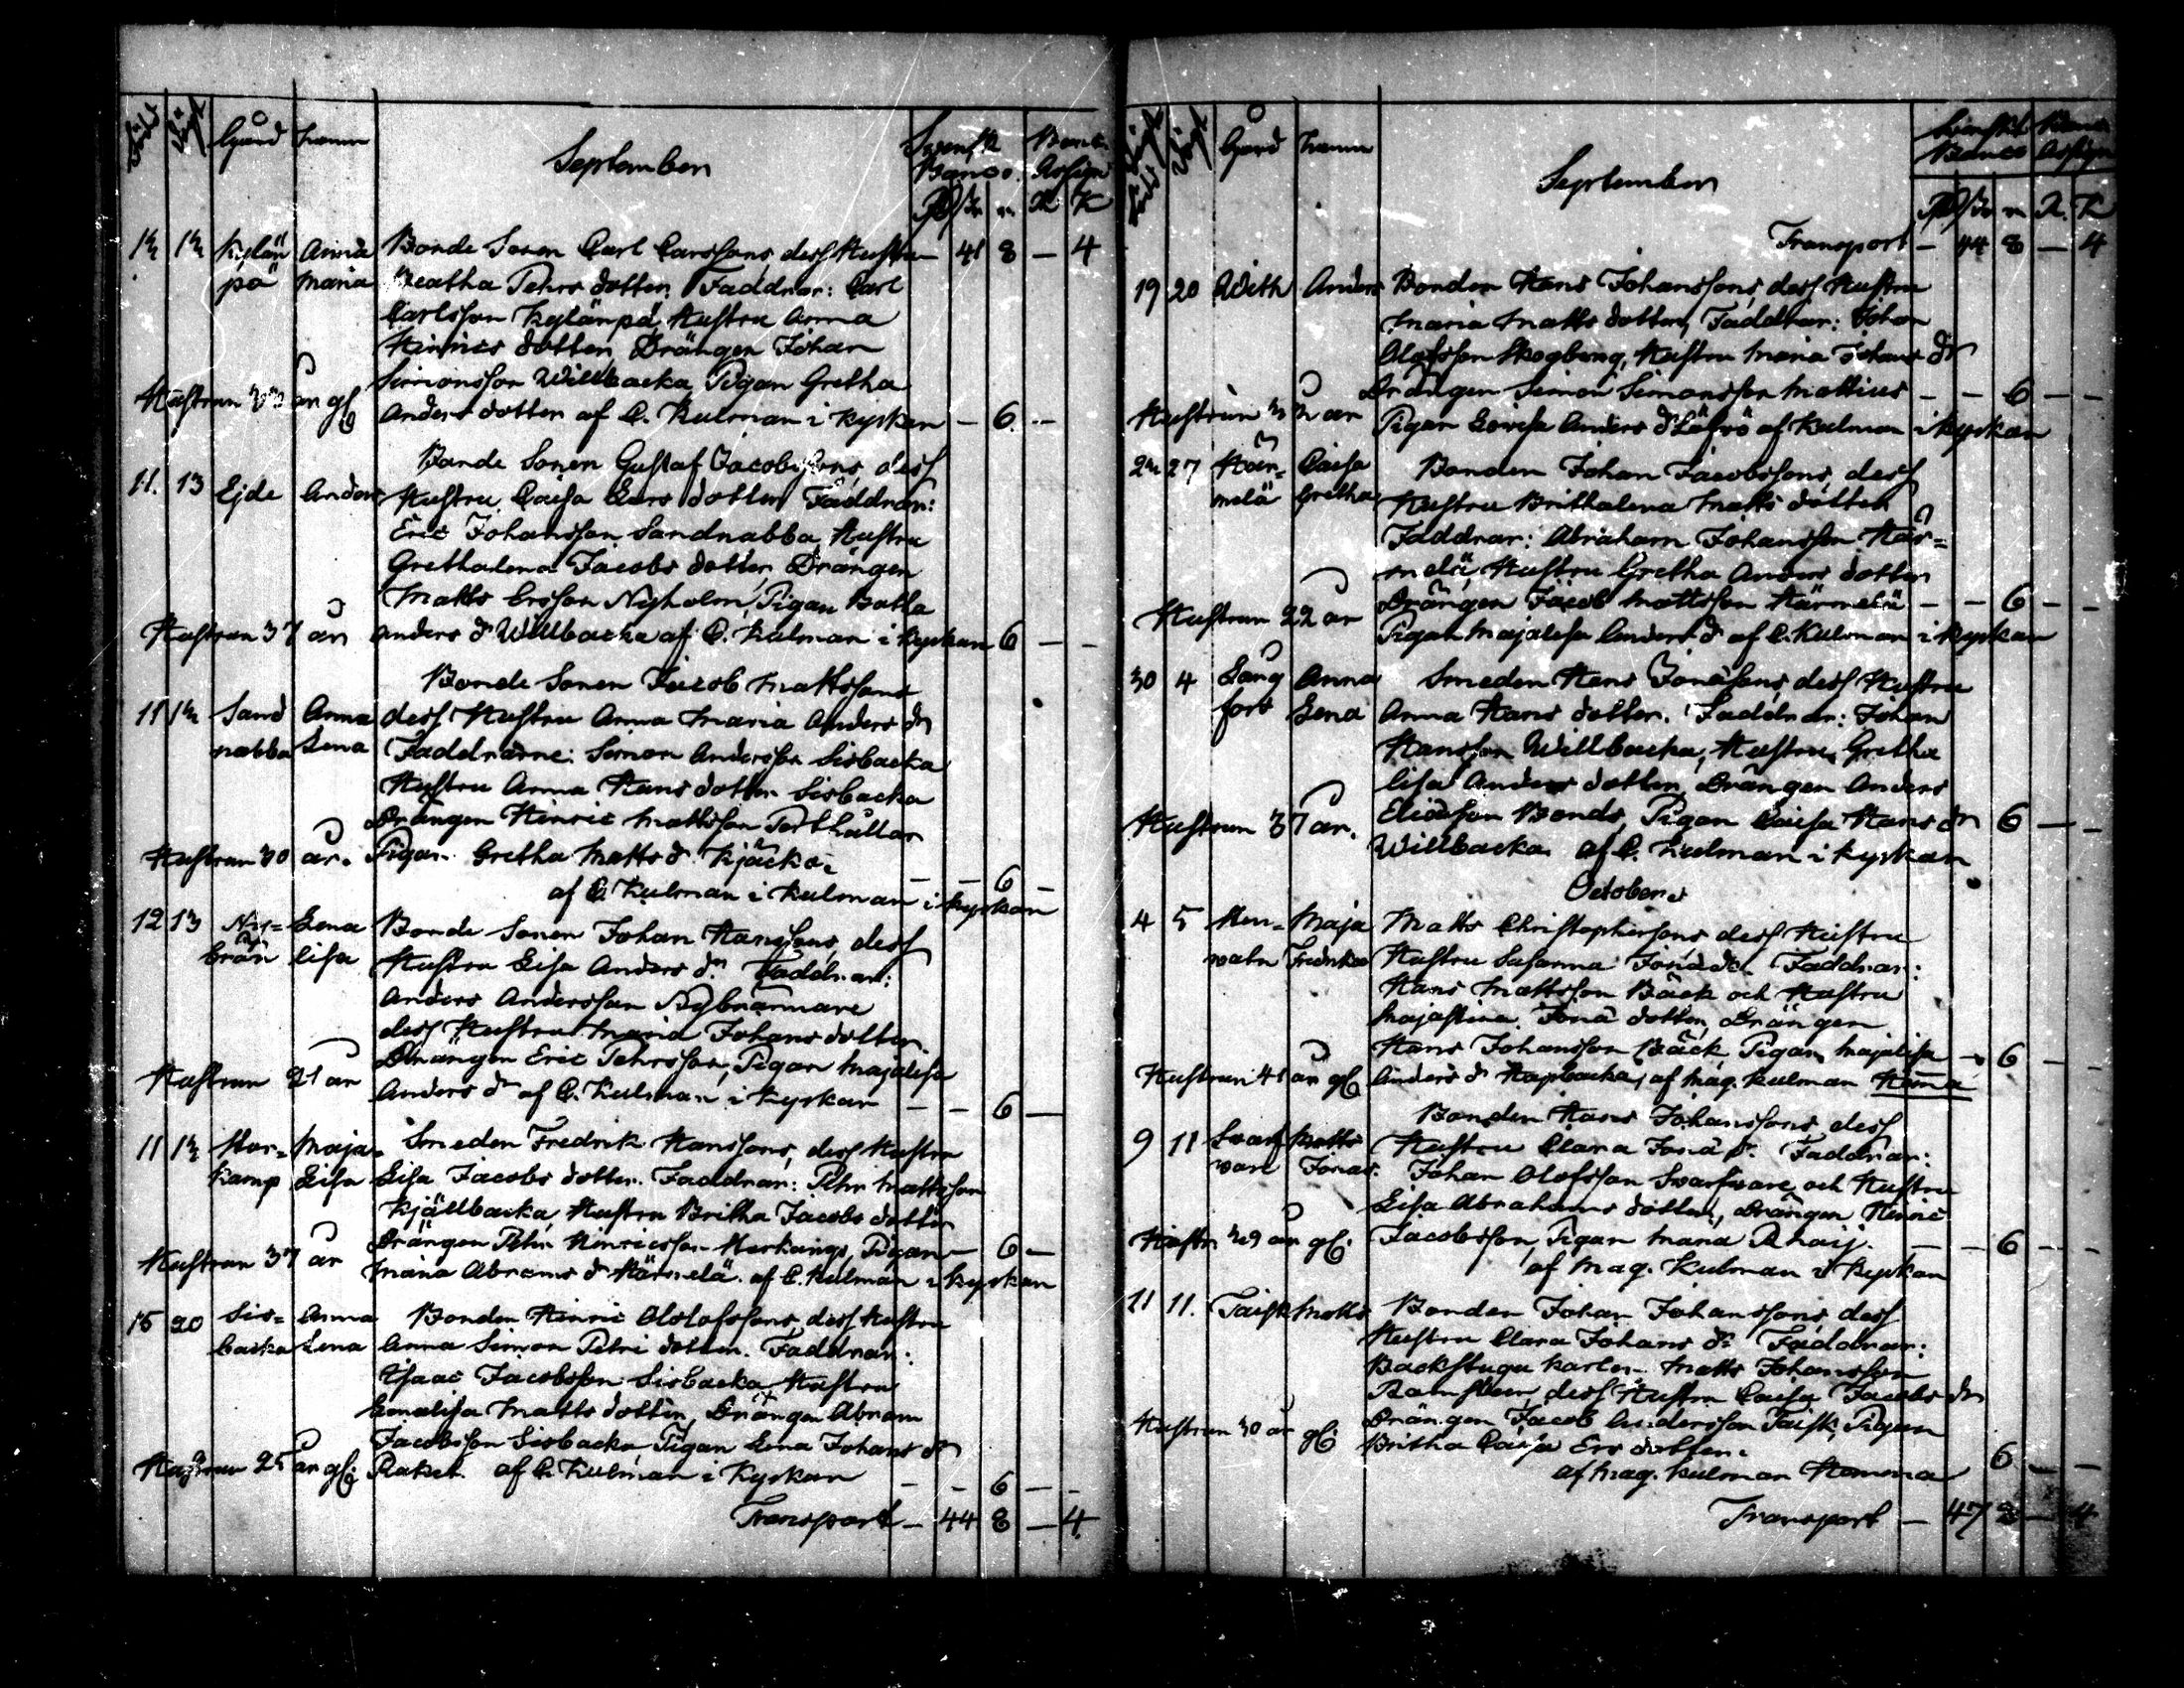 Gård Namn
September
Svensk Banco. Banco Assign
Kylän Anna Bonde Sonen Carl Carlssons dess Hustru 41 8 — 4
pä Maria Beatha Pehrs dotter, Faddrar: Carl
Carlsson Kylänpä, Hustru Anna
Hinrics dotter, Drängen Johan
Simonsson Willbacka, Pigan Gretha
Hustrun år gl Anders dotter af C. Kulman i Kyrkan — 6 —
Bonde Sonen Gustaf Jacobssons, dess
11. 13 Ejde Anders Hustru Caisa Lars dotter Faddrar:
Eric Johansson Sandnabba, Hustru
Grethalena Jacobs dotter, Drängen
Matts Ersson Nyholm, Pigan
Hustrun 37 år Anders dr Willbacka af C. Kulman i kyrkan 6 — -
Bonde Sonen Jacob Mattssons
11 Sand Anna dess Hustru Anna Maria Anders dr
nabba Lena Faddrarne: Simon Andersson Sisbacka
Hustru Anna Hans dotter Sisbacka
Drängen Hinric Mattsson
Hustrun 30 år. Pigan Gretha Matts dr — — 6 —
af C. Kulman i Kulman i kyrkan
12 13 Ny- Lena Bonde Sonen Johan Hanssons, dess
brän Lisa Hustru Lisa Anders dr Faddrar:
Anders Andersson Nybrännare
dess Hustru Maria Johans dotter
Drängen Eric Pehrsson, Pigan Majalisa
Hustrun 21 år Anders dr af C. Kulman i Kyrkan — — 6 —
11 Maja- Smeden Fredrik Hanssons, dess Hustru
kamp Lisa Lisa Jacobs dotter. Faddrar: Pehr Mattsson
Kjällbacka, Hustru Britha Jacobs dotter
Drängen Pehr Hinricsson Pigan — 6 —
Hustrun 37 år Maria Abrams dr Härmelä. af C. Kulman i kyrkan
15 20 Sis- Anna Bonden Hinric Olofssons, dess Hustru
backa Lena Anna Simon Petri dotter. Faddrar:
Isaac Jacobsson Sisbacka Hustru
Lenalisa Matts dotter, Drängen Abram
Jacobsson Sisbacka Pigan Lena Johans dr
Hustrun 25 år gl: af C. Kulman i Kyrkan — — 6 — -
Transport — 44 8 — 4
Gård Namn
September
Svensk Banco Banco Assign
Transport — 44 8 — 4
19 20 With Anders Bonden Hans Johanssons, dess Hustru
Maria Matts dotter, Faddrar: Johan
Olofsson Skogberg, Hustru Maria Johans dr
Drängen Simon Simonsson — — 6 — -
Hustrun år Pigan Lovisa Anders dr af Kulman i kyrkan
27 Här- Caisa Bonden Johan Jacobssons, dess
melä Gretha Hustru Brithalena Matts dotter
Faddrar: Abraham Johansson Här=
melä, Hustru Gretha Anders dotter
Drängen Jacob Mattsson Härmelä — — 6 — -
Hustrun 22 år Pigan Majalisa Anders dr af C. Kulman i kyrkan
30 4 Lång Anna Smeden Hans Jonassons, dess Hustru
fors Lena Anna Hans dotter. Faddrar: Johan
Hansson Willbacka, Hustru Gretha
Lisa Anders dotter, Drängen Anders
Hustrun 37 år. Eliasson Bonds, Pigan Caisa Hans dr 6 — -
Willbacka af C. Kulman i kyrkan
October
4 5 Maja Matts Christophersons dess Hustru
Fredrika Hustru Susanna Jona dr. Faddrar:
Hans Mattsson Bäck och Hustru
Majastina Jona dotter, Drängen
Hans Johansson Bäck Pigan Majalisa — 6 —
Hustrun 41 år gl Anders dr af Mag. Kulman Hema
Bonden Hans Johanssons dess
9 11 Svarf Matts Hustru Clara Jona dr. Faddrar:
vare Jonas. Johan Olofsson Svarfvare och Hustru
Lisa Abrahams dotter, Drängen Hinric
Hustr år gl: Jacobsson, Pigan Maria — — 6 — -
af Mag. Kulman i Kyrkan
11 11. Taisk Matts Bonden Johan Johanssons dess
Hustru Clara Johans dr Faddrar:
Backstugu karlen Matts Johansson
dess Hustru Caisa Jacobs dr
Hustrun 30 år gl: Drängen Jacob Andersson Taisk, Pigan
Britha Caisa Ers dotter.
af Mag. Kulman Hemma 6 — -
Transport — 47 8 — 4